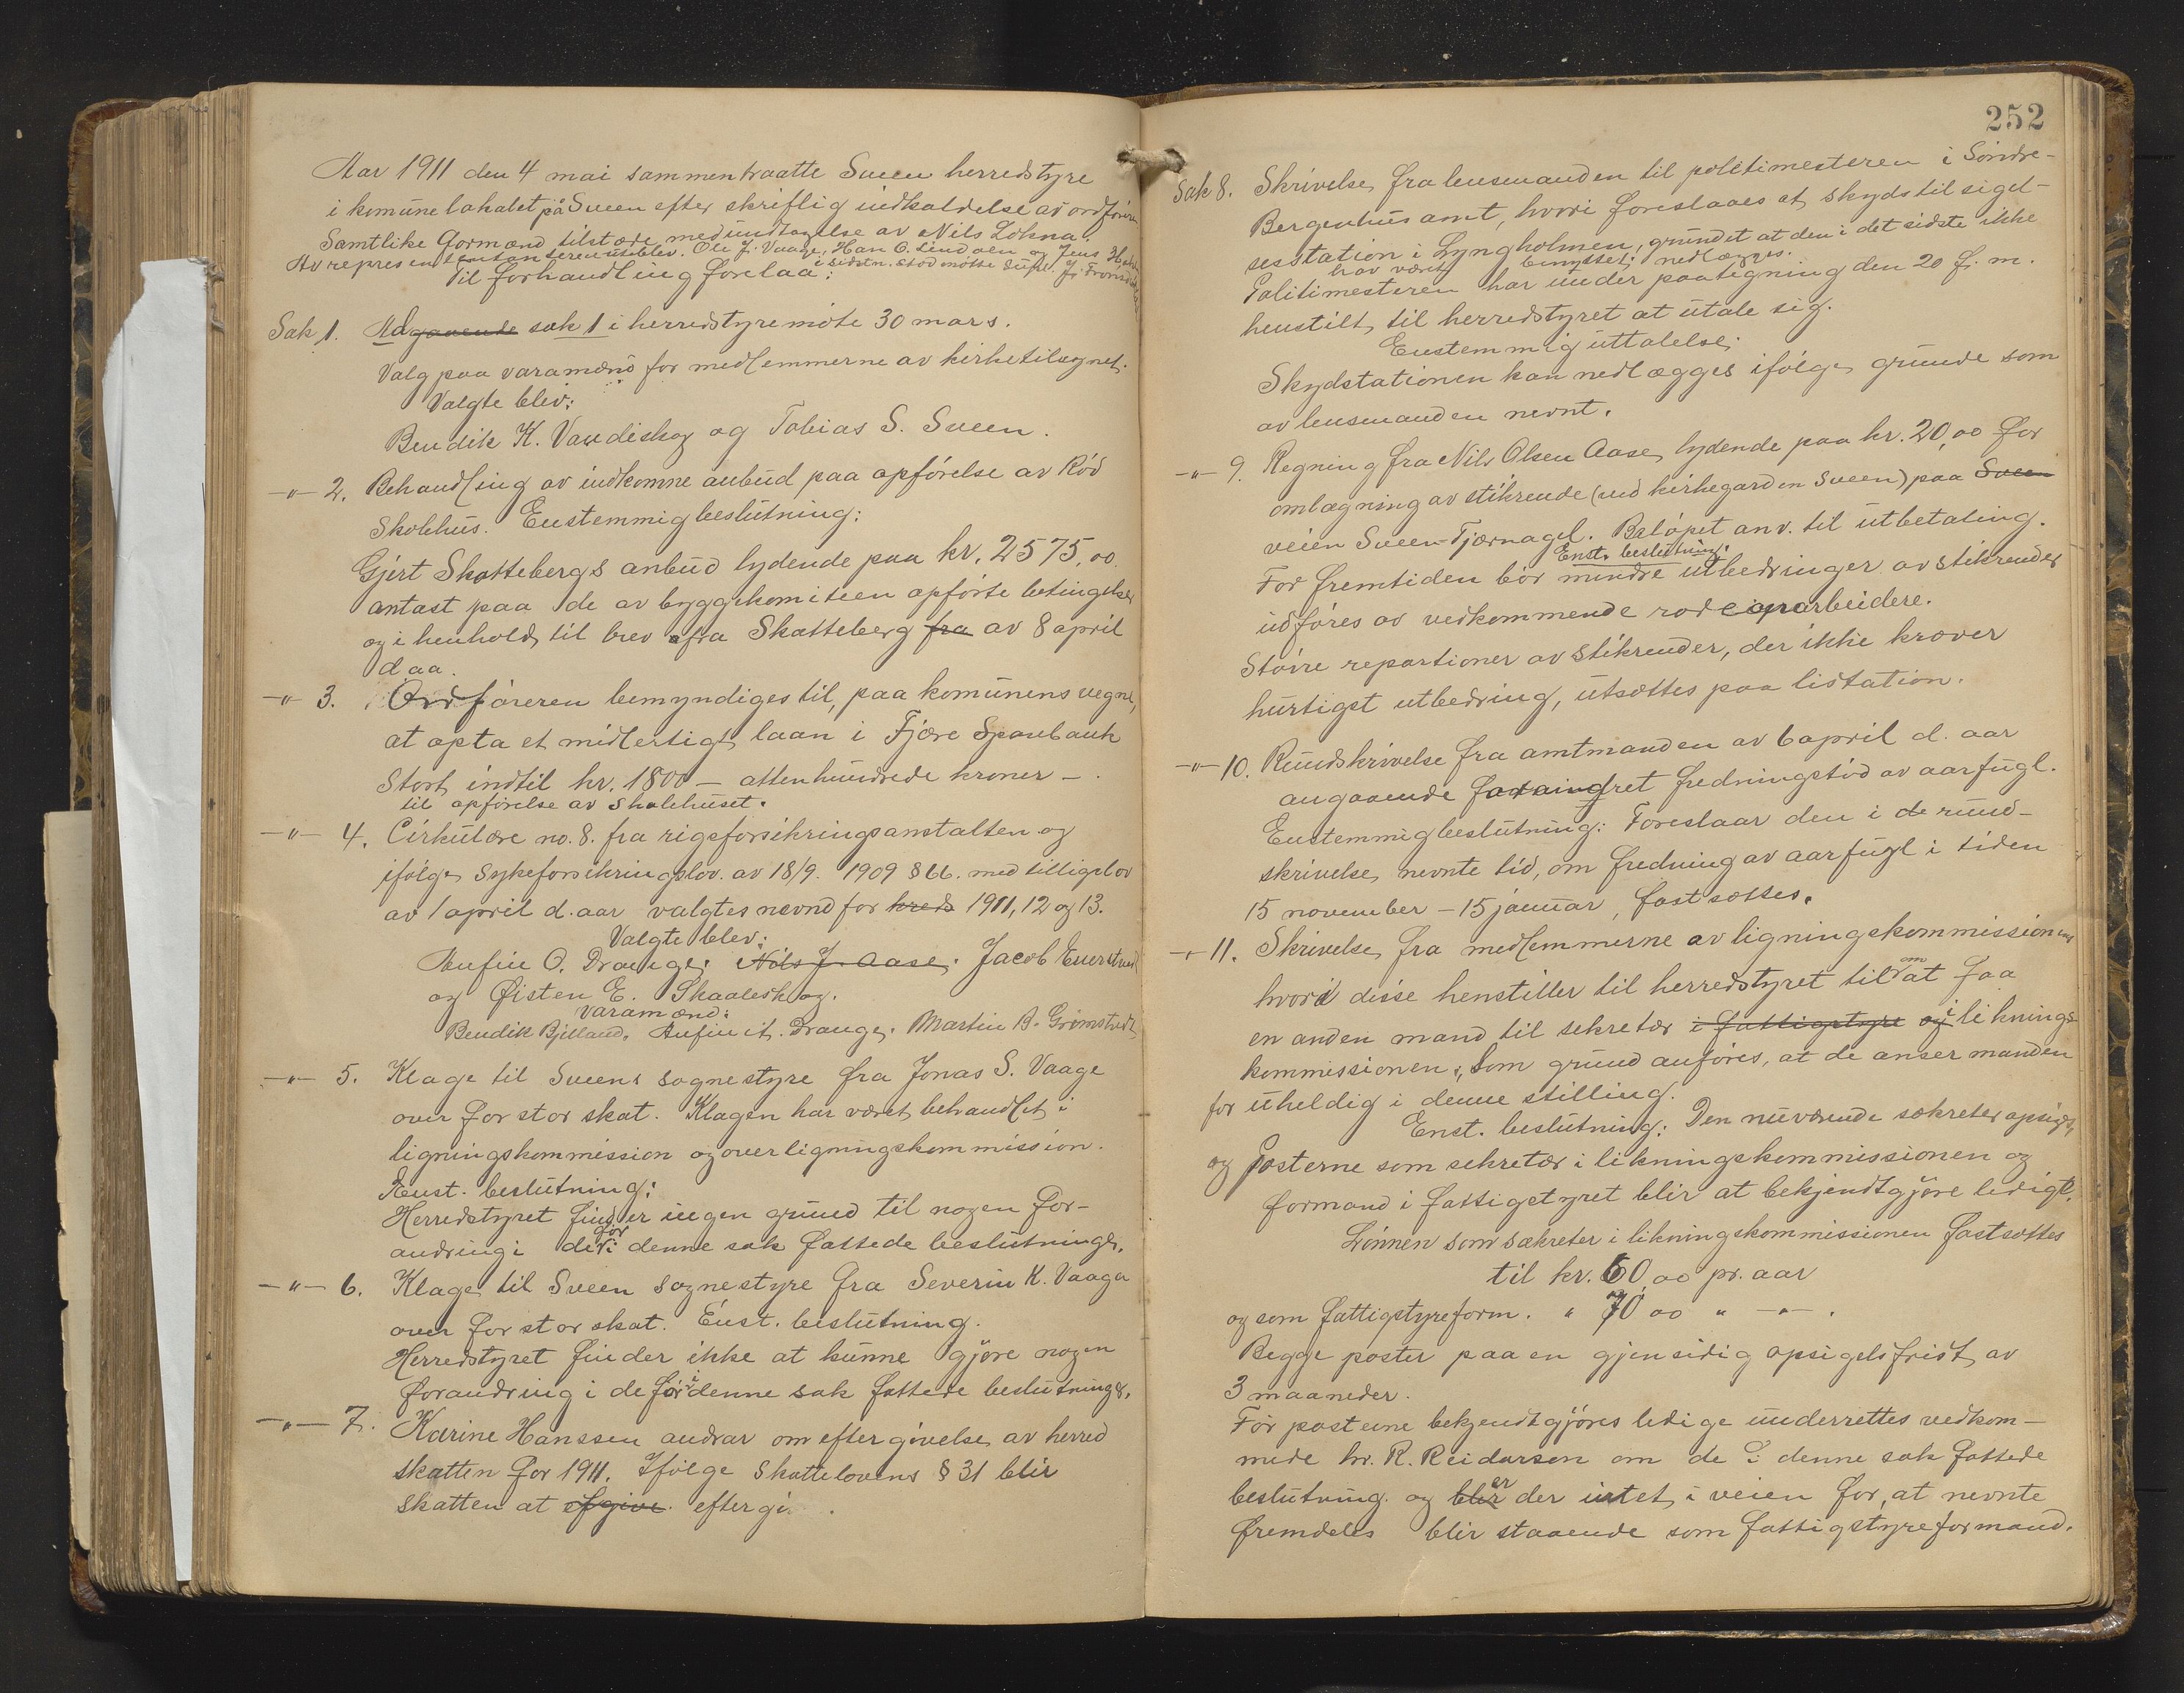 Aar 1911 den 4 mai sammentraatte Sveen herredstyre
i komunelokalet på Sveen efter skriftlig indkaldelse av ordføreren
Samtlike formænd tilstæde med undtagelse av Nils Lokna.
Av representanterne uteblev. Ole J. Vaage, Han O. Lindøen og Jens
i sidstn. sted møtte supl. J.
Til forhandling forelaa:
Sak 1. Adgaaende sak 1 i herredstyremøte 30 mars.
Valg paa varamænd for medlemmerne av kirketilsynet.
Valgte blev:
Bendik K. Vandeskog og Tobias S. Sveen.
-"- 2. Behandling av indkomne anbud paa opførelse av Rød
Skolehus. Enstemmig beslutning:
Gjert Skattebergs anbud lydende paa kr. 2575,00
antast paa de av byggekomiteen opførte betingelser
og i henhold til brev fra Skatteberg fra av 8 april
d. aa.
-"- 3. Ordføreren bemyndiges til, paa komunens vegne,
at opta et midlertigt laan i Fjære Sparebank
Stort indtil kr. 1800 – attenhundrede kroner –.
til opførelse av skolehuset.
-"- 4. Cirkulære no. 8. fra rigsforsikringsanstalten og
ifølge sykeforsikringslov. av 18/9. 1909 § 66. med tilligslov
av 1 april d. aar valgtes nevnd for kreds 1911, 12 og 13.
Valgte blev:
Anfin O. Drange, Nils J. Aase, Jacob
og Øisten E. Skaaleskog.
varamænd:
Bendik Bjelland. Anfin A. Drange. Martin B. Grimstvedt
-"- 5. Klage til Sveens sognestyre fra Jonas S. Vaage
over for stor skat. Klagen har været behandlet i
ligningskommission og overligningskommission.
Enst. beslutning:
Herredstyret finder ingen grund til nogen for-
andring i de før i denne sak fattede beslutninger.
-"- 6. Klage til Sveen sognestyre fra Severin K. Vaage
over for stor skat. Enst. beslutning.
Herredstyret finder ikke at kunne gjøre nogen
forandring i de før i denne sak fattede beslutninger.
-"- 7. Karine Hanssen andrar om eftergivelse av herred
skatten for 1911. Ifølge Skattelovens § 31 blir
skatten at efgive eftergi.
252
Sak 8. Skrivelse fra lensmanden til politimesteren i Søndre-
Bergenhus amt, hvori foreslaaes at skydstilsigel-
sesstation i Lyngholmen, grundet at den i det sidste ikke
har været benyttet; nedlægges.
Politimesteren har under paategning den 20 f. m.
henstilt til herredstyret at utale sig.
Enstemmig uttalelse:
Skydstationen kan nedlægges ifølge grunde som
av lensmanden nevnt.
-"- 9. Regning fra Nils Olsen Aase, lydende paa kr. 20,00 for
omlægning av stikrende (ved kirkegarden Sveen) paa Sveen
veien Sveen-Tjernagel. Beløpet anv. til utbetaling.
Enst. beslutning:
For fremtiden bør mindre utbedringer av stikrender
udføres av vedkommende rodes arbeidere.
Større repartioner av stikrender, der ikke kræver
hurtigst utbedring, utsættes paa listation.
-"- 10. Rundskrivelse fra amtmanden av 6 april d. aar
angaaende forandret fredningstid av aarfugl.
Enstemmig beslutning: Foreslaar den i de rund-
skrivelse nevnte tid, om fredning av aarfugl i tiden
15 november – 15 januar, fastsættes.
-"- 11. Skrivelse fra medlemmerne av ligningskommissionen
hvori disse henstiller til herredstyret til om at faa
en anden mand til sekretær i fattigstyre og i liknings-
kommissionen. Som grund anføres, at de anser manden
for uheldig i denne stilling.
Enst. beslutning: Den nuværende sekretær opsiges,
og posterne som sekretær i likningskommissionen og
formand i fattigstyret blir at bekjendtgjøre ledigt.
Lønnen som sekretær i likningskommissionen fastsættes
til kr. 60,00 pr. aar
og som fattigstyreform. " 70 00 " -"- .
Begge poster paa en gjensidig opsigelsfrist av
3 maaneder.
Før posterne bekjendtgjøres ledige underrettes vedkom-
mede hr. R. Reidarsen om de i denne sak fattede
beslutning. og blir er der intet i veien for, at nevnte
fremdeles blir staaende som fattigstyreformand.